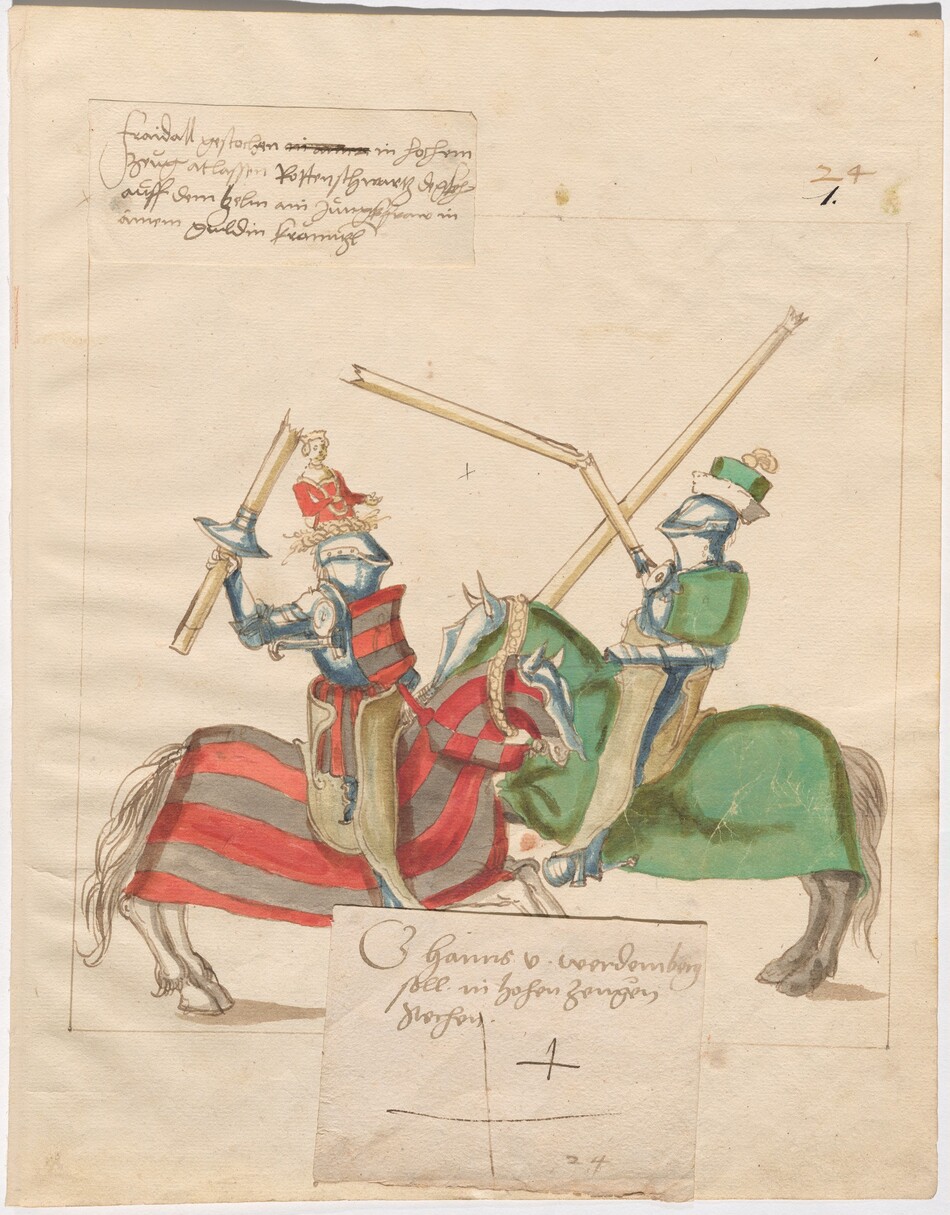 fraidall gestochen in hochem
Zeug atlassen Rot schwartz
auff dem helm ain Junckfraw in
ainem guldin krenntzl
24
1.
G hanns v. werdemberg
soll in hohen Zeugen
stechen.
24